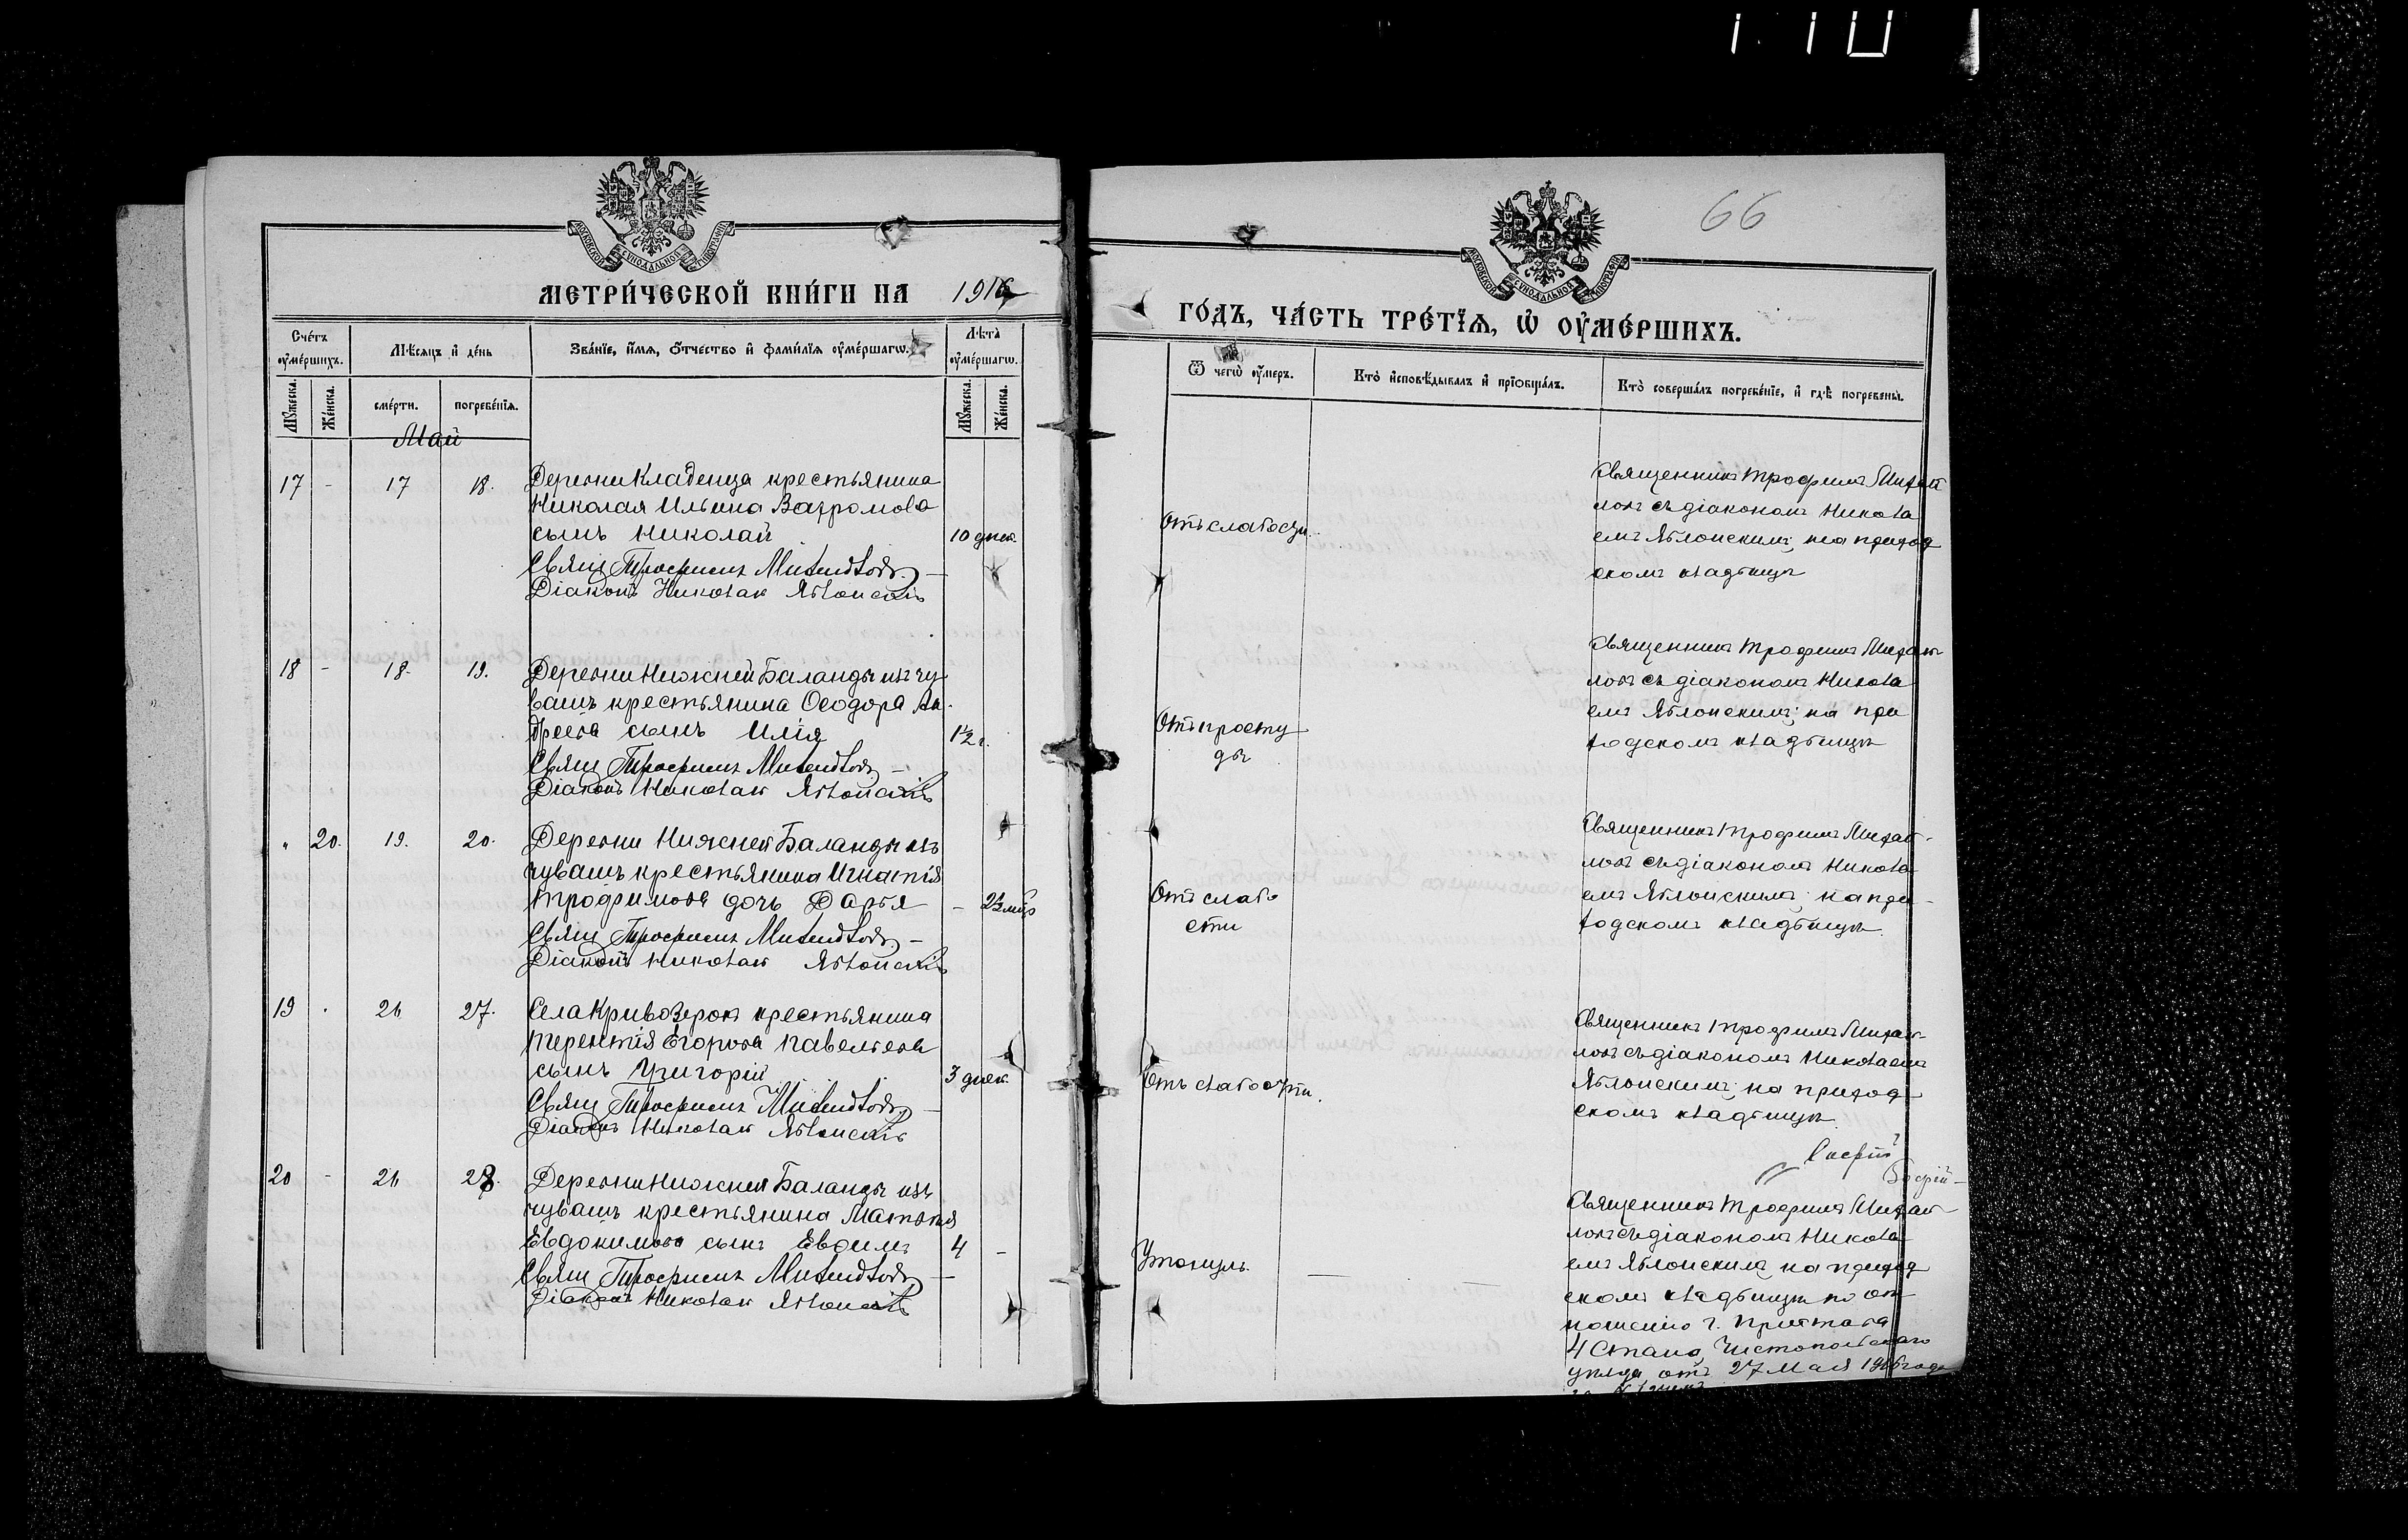 66
МЕТРИ́ЧЕСКОЙ КНИ́ГИ НА 1916
ГО́ДЪ, ЧА́СТЬ ТРЕ́ТЇѦ, Ѡ҆ ОУ҆МЕ́РШИХЪ.
Сче́тъ оу҆ме́ршихъ.
Мѣ́сяцъ и҆ де́нь
Зва́нїе, и҆́мѧ, ѻ҆́тчество и҆ фами́лїѧ оу҆ме́ршагѡ.
Лѣ́та оу҆ме́ршагѡ.
Ѿ чегѡ̀ оу҆́меръ.
Кто̀ и҆сповѣ́дывалъ и҆ прїѡбща́лъ.
Кто̀ соверша́лъ погребе́нїе, и҆ гдѣ̀ погребены̀.
Мꙋжеска.
Же́нска.
сме́рти.
погребе́нїѧ.
Мꙋжеска.
Же́нска.
Май
17 - 17 18.
Деревни Кладенца крестьянина
Николая Ильина Вахромова
сынъ Николай 10 дней.
Свящ. Трофимъ Михайловъ
Діаконъ Николай Яблонскій
Отъ слабости.
Священникъ Трофимъ Михай
ловъ съ діакономъ Никола
емъ Яблонскимъ; на приход
скомъ кладбищѣ
18 - 18. 19.
Деревни Нижней Баланды изъ чу
вашъ крестьянина Ѳеодора Ан-
дреева сынъ Илія 1½ г.
Свящ. Трофимъ Михайловъ
Діаконъ Николай Яблонскій
Отъ просту
ды
Священникъ Трофимъ Михай
ловъ съ діакономъ Никола
емъ Яблонскимъ; на при
ходскомъ кладбищѣ
" 20. 19. 20.
Деревни Нижней Баланды изъ
чувашъ крестьянина Игнатія
Трофимова дочь Дарья - 2½ мѣс
Свящ. Трофимъ Михайловъ
Діаконъ Николай Яблонскій
Отъ слабо
сти
Священникъ Трофимъ Михай-
ловъ съ діакономъ Никола
емъ Яблонскимъ; на при-
ходскомъ кладбищѣ.
19 . 26 27.
Села Кривозерокъ крестьянина
Терентія Егорова Павельева
сынъ Григорій 3 дней.
Свящ. Трофимъ Михайловъ
Діаконъ Николай Яблонскій
Отъ слабости.
Священникъ Трофимъ Михай-
ловъ съ діакономъ Николаемъ
Яблонскимъ; на приход
скомъ кладбищѣ.
20 - 26 28.
Деревни Нижней Баланды изъ
чувашъ крестьянина Матвѣя
Евдокимова сынъ Евѳимъ 4 -
Свящ. Трофимъ Михайловъ
Діаконъ Николай Яблонскій
Утонулъ.
Священникъ Трофимъ Михай
ловъ съ діакономъ Никола
емъ Яблонскимъ на приход
скомъ кладбищѣ по от
ношенію г. Пристава
4 Стана Чистопольскаго
уѣзда отъ 27 Мая 1916 года